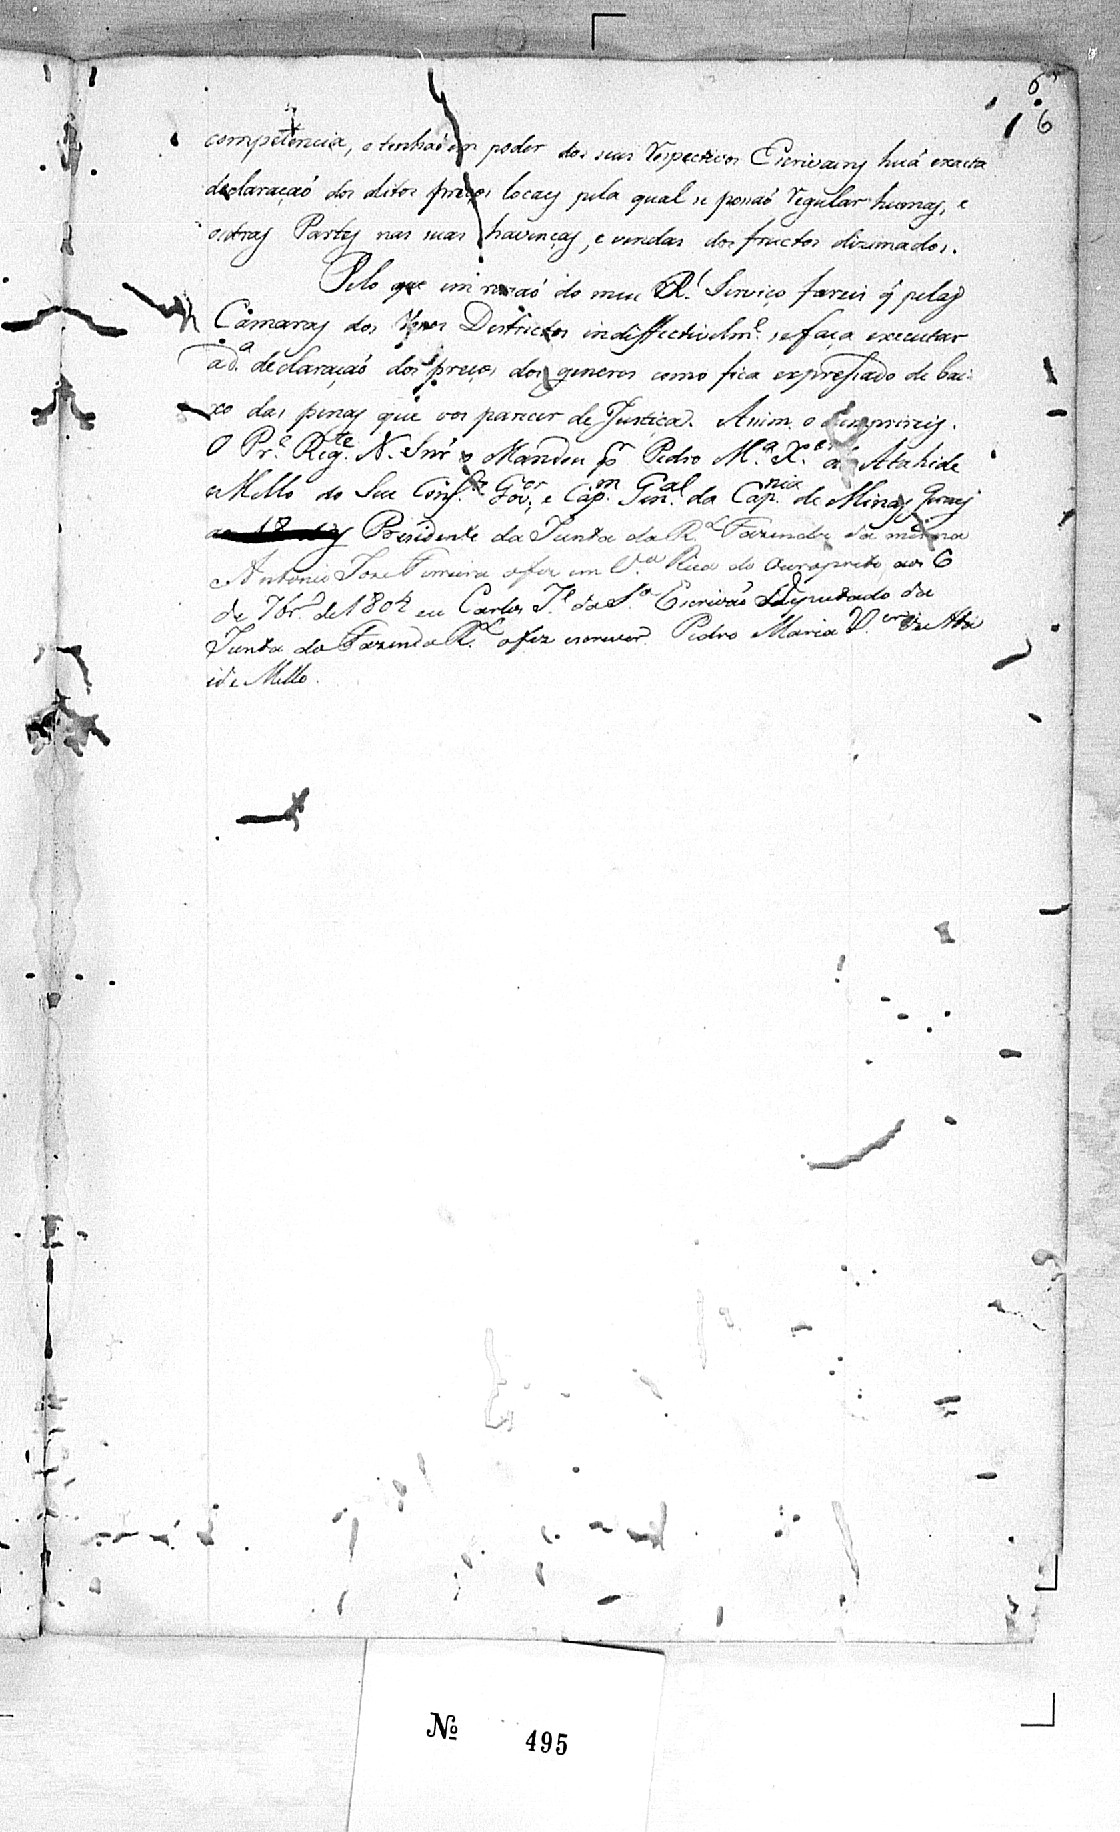 6
6
competencia, e tenhaõ em poder dos seus respectivos Escrivaens huã exacta
declaraçaõ dos ditos preços locaes pela qual se possaõ regular humas, e
outras Partes nas suas havenças, e vendas dos fructos dizimados.
Pelo que em razaõ do meu R.l Serviço fareis q̃ pelas
Camaras dos Vossos Destrictos indiffectivelm.e se faça executar
a d.a declaraçaõ dos preços dos generos como fica expressado de bai-
xo das penas que vos parecer de Justiça. Asim o cumprireis.
O Pr.e Reg.te N. Snr̃ o Mandou p̃r Pedro M.a X.er de Atahide
e Mello do Seu Cons.o Gov.or, e Cap.m Gen.al da Cap.nia de Minas Geraes
Prezidente da Junta da R.l Fazenda da mesma
Antonio Joze Ferreira a fez em V.a Rica do Ouropreto aos 6
de 7br.o de 1804 eu Carlos J.e da S.a Escrivaõ Deputado da
Junta da Fazenda R.l a fez escrever. Pedro Maria X.er de Ata
ide Mello.
Nº 495